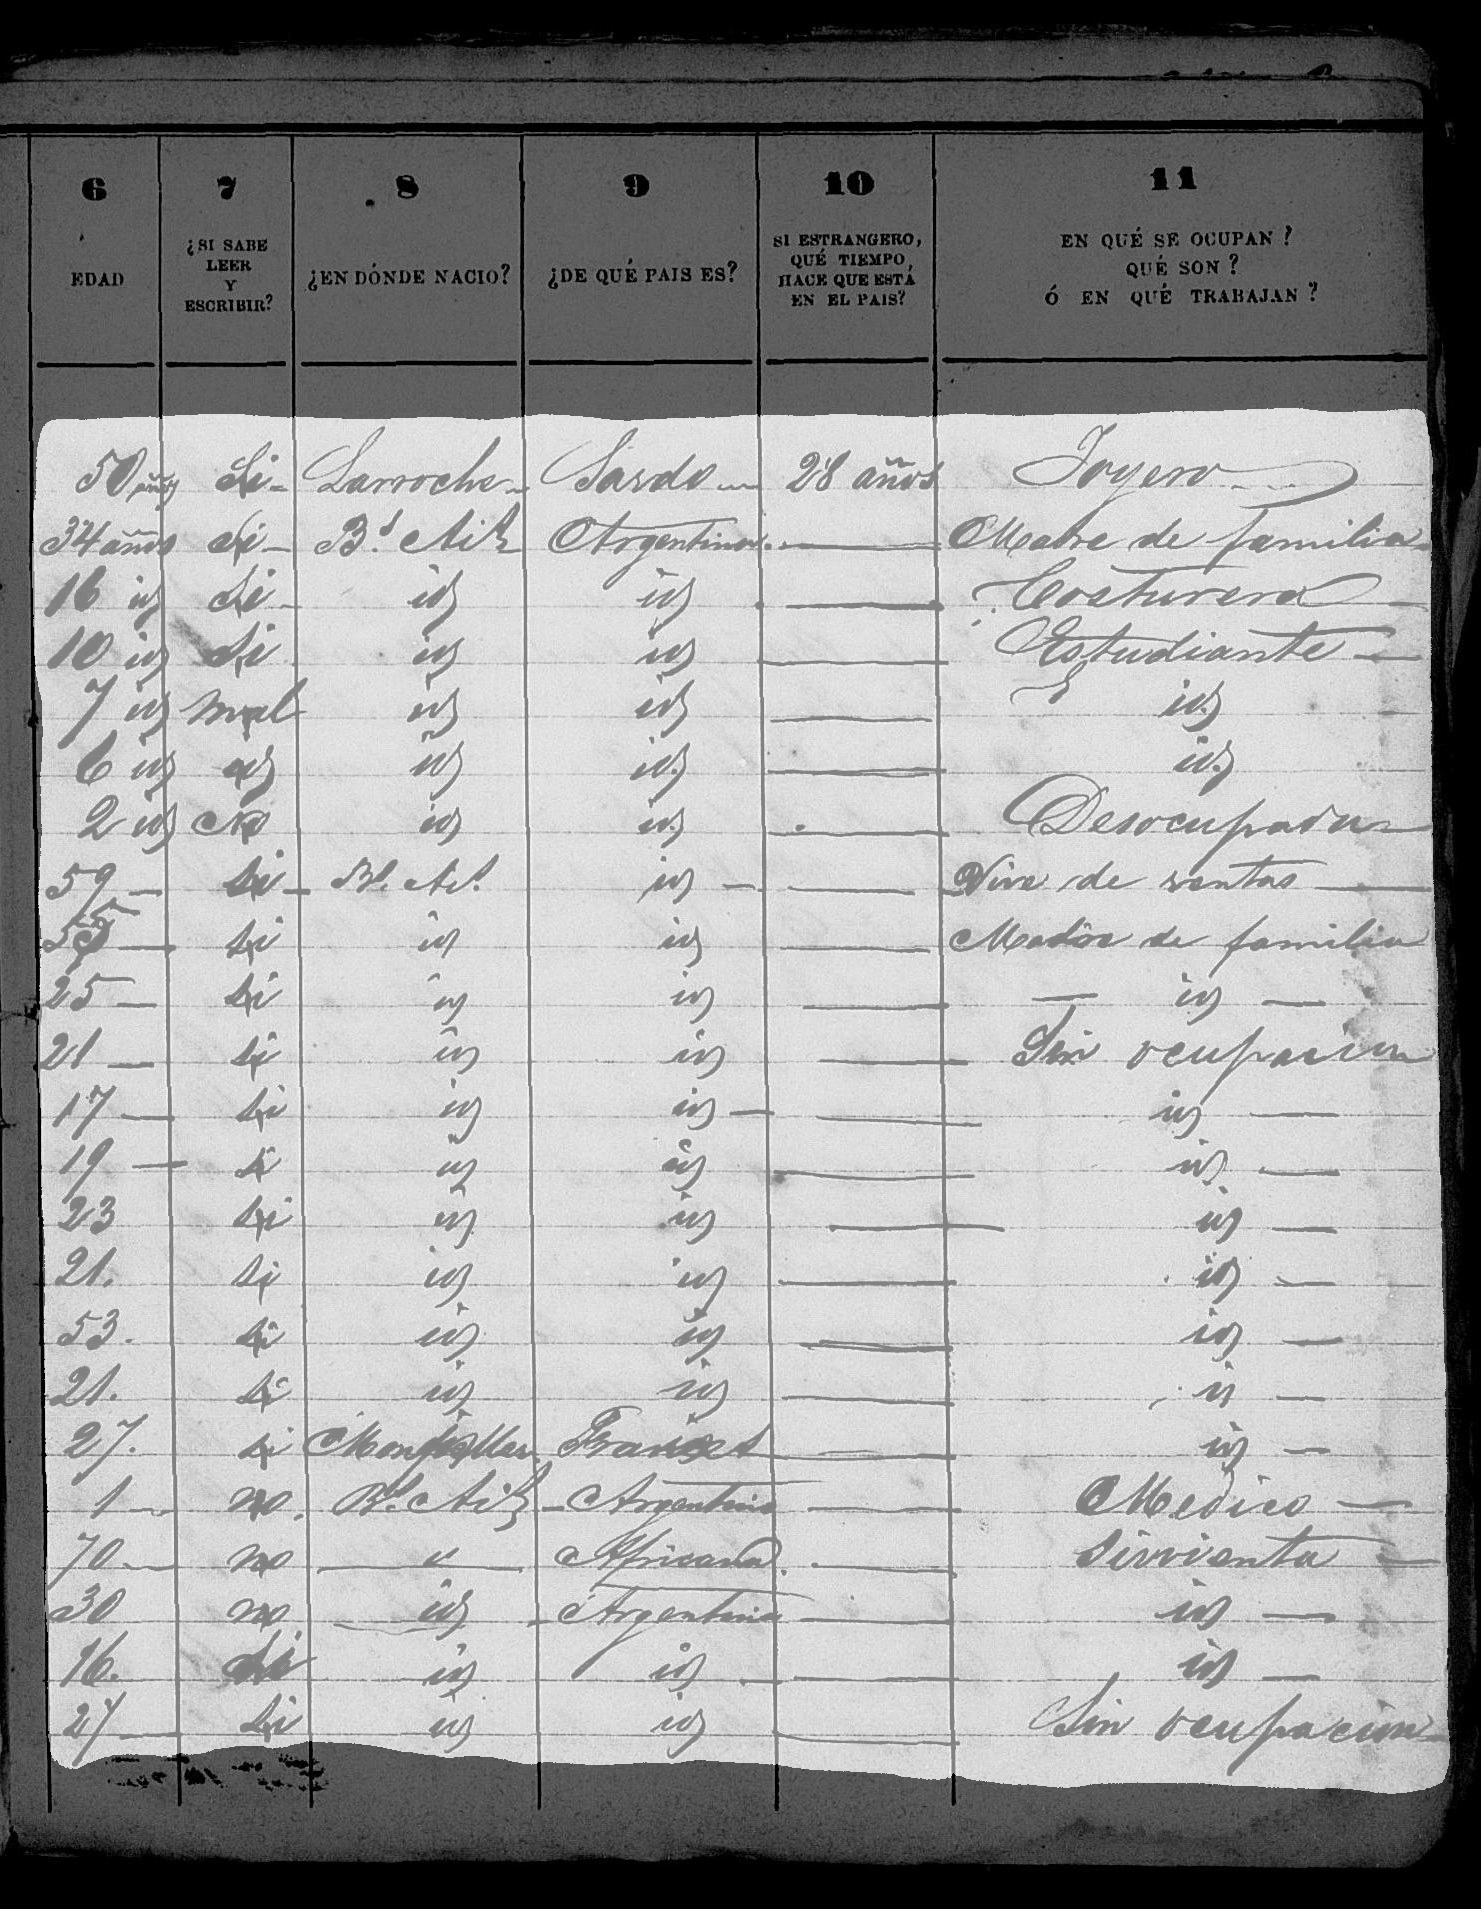 6 7 8 9 10 11
EDAD ¿SI SABE LEER Y ESCRIBIR? ¿EN DÓNDE NACIO? ¿DE QUÉ PAIS ES? SI ESTRANGERO, QUÉ TIEMPO HACE QUE ESTÁ EN EL PAIS? EN QUÉ SE OCUPAN? QUÉ SON? Ó EN QUÉ TRABAJAN?
50 años Si Larroche Sardo 28 años Joyero
34 años Si Bs. Ais Argentina Madre de familia
16 id Si id id Costurera
10 id Si id id Estudiante
7 id mal id id id
6 id id id id id
2 id No id id Desocupada
59 si Bs. As. id Vive de rentas
55 si id id Madre de familia
25 si id id id
21 si id id Sin ocupacion
17 si id id id
19 si id id id
23 si id id id
21. si id id id
53. si id id id
21. si id id id
27. si Frances id
1 no. Bs. Ais Argentino Medico
70 no " Africana Sirvienta
30 no id Argentina id
16. Si id id id
27 Si id id Sin ocupacion